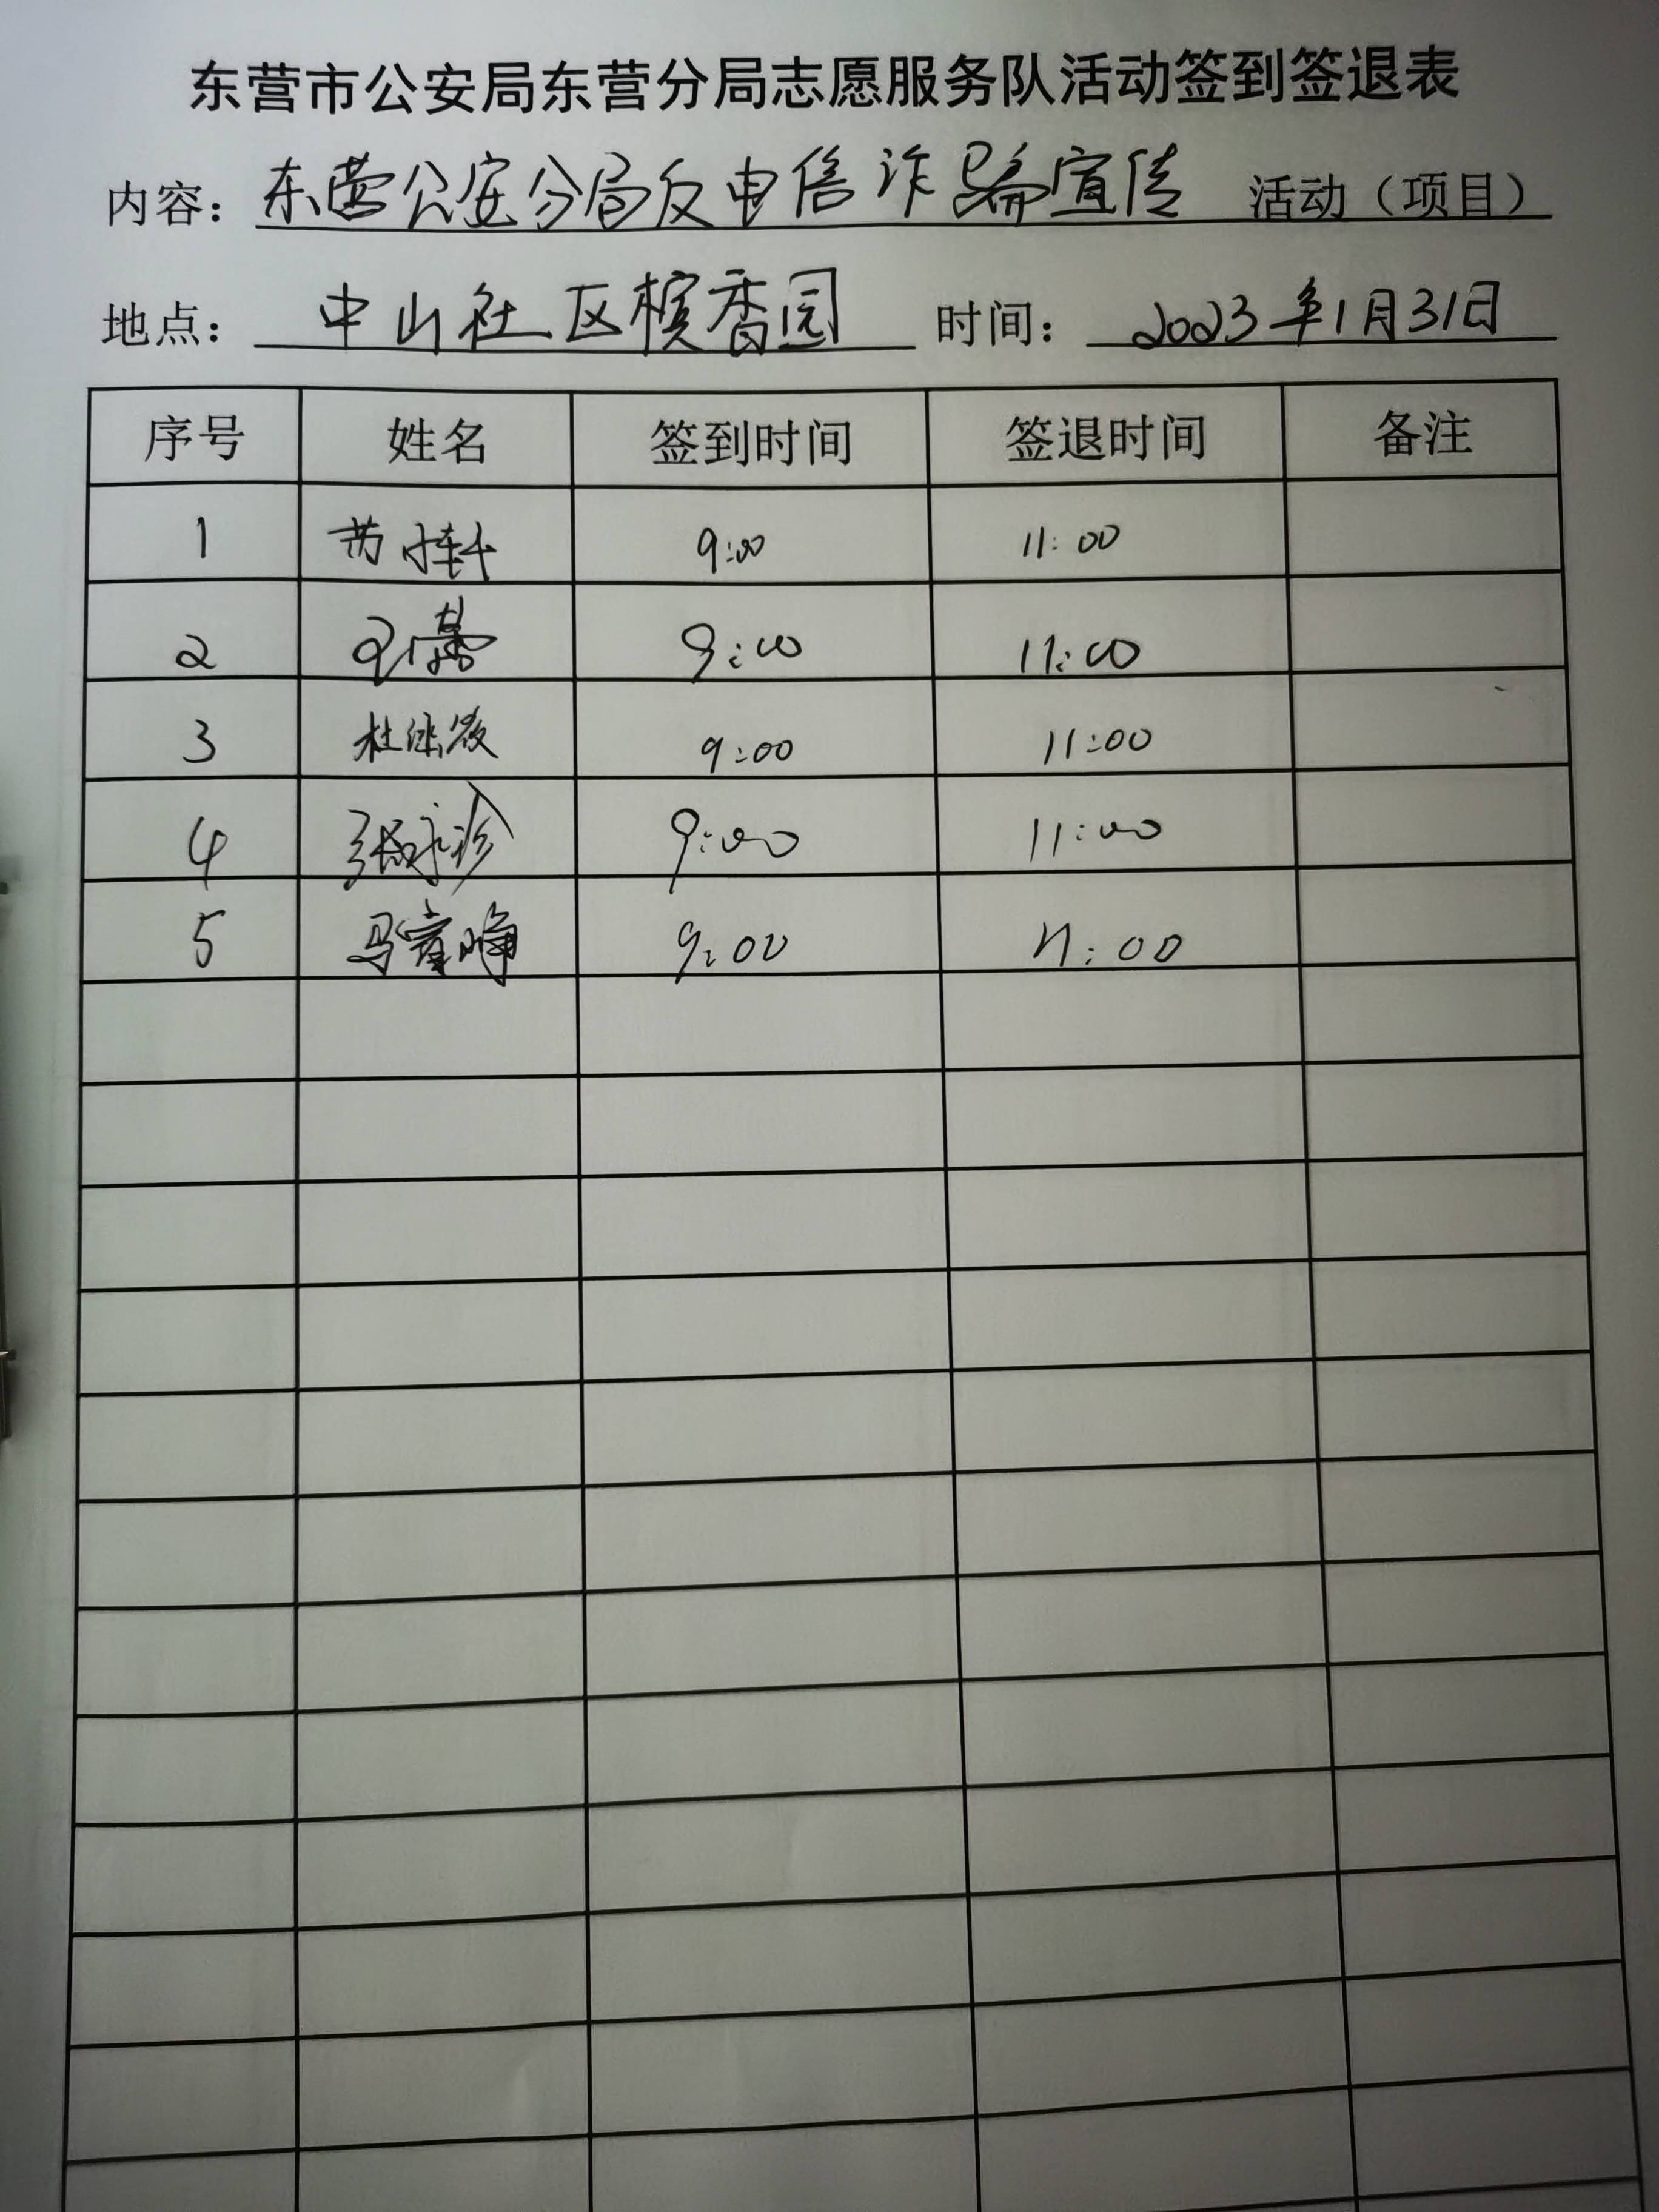 东营市公安局东营分局志愿服务队活动签到签退表
内容：东营公安分局反电信诈骗宣传 活动（项目）
地点：中山社区槟香园 时间：2023年1月31日
序号 姓名 签到时间 签退时间 备注
1 9:00 11:00
2 9:00 11:00
3 9:00 11:00
4 张永珍 9:00 11:00
5 9:00 11:00